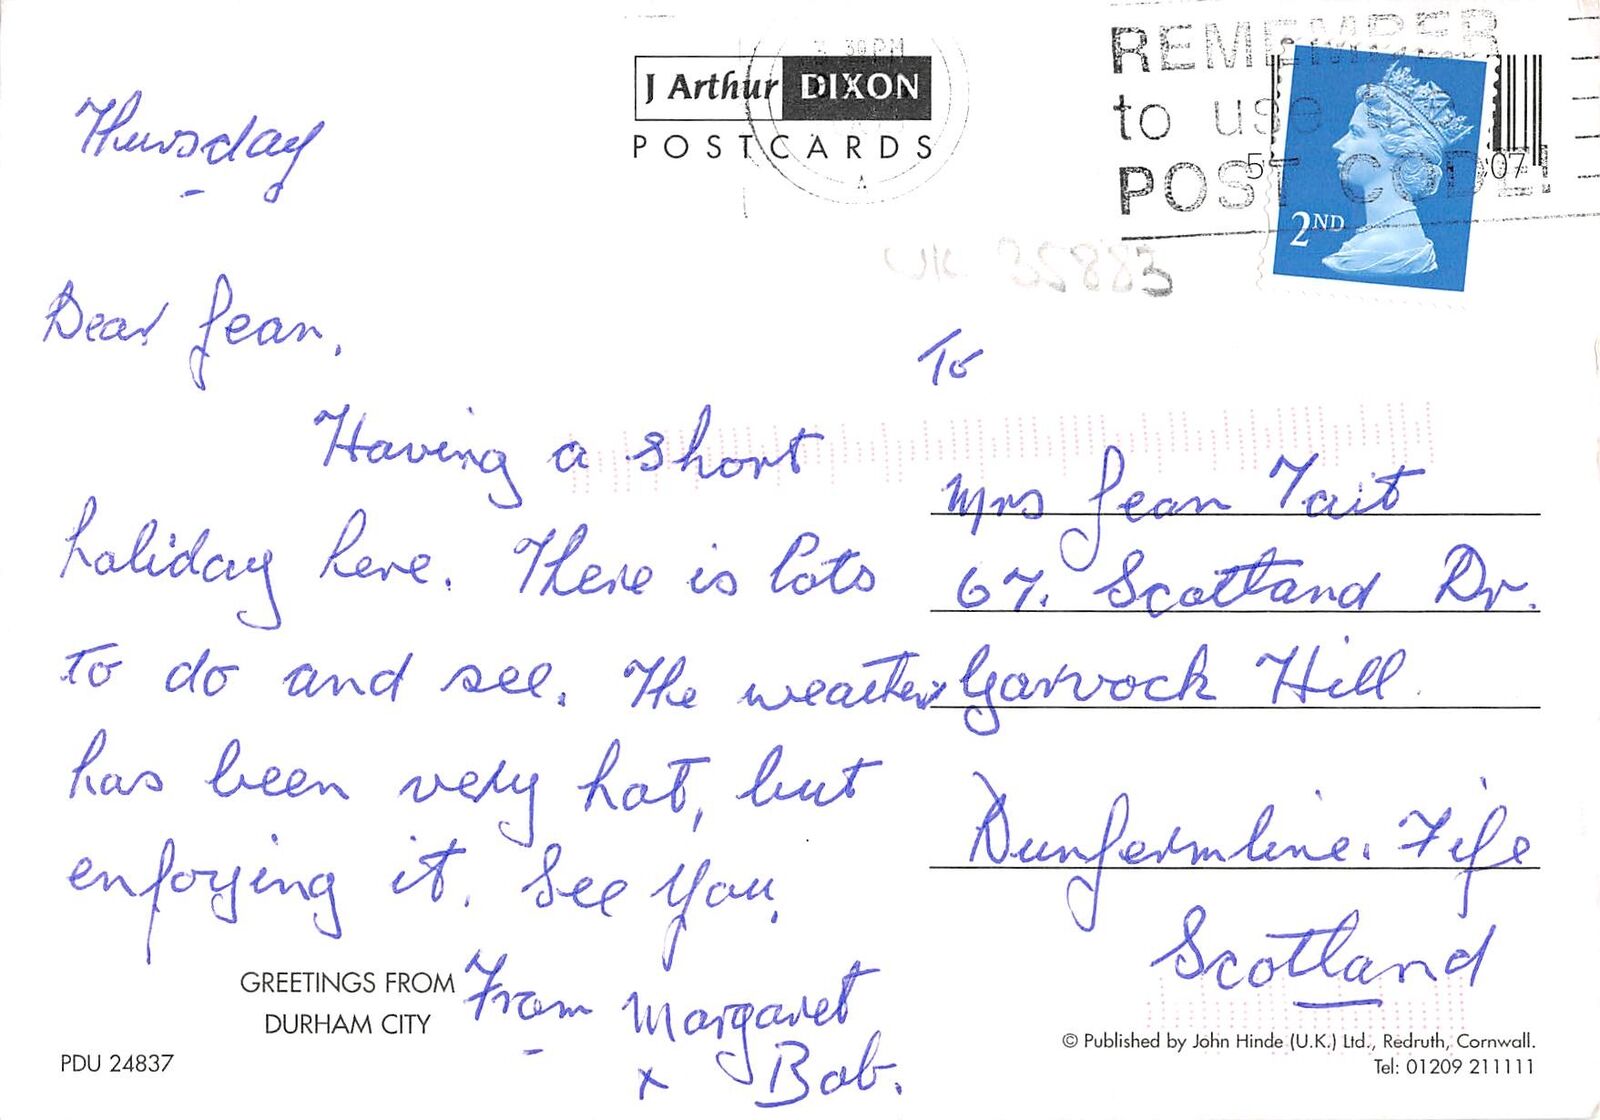 Thursday
J Arthur DIXON
POSTCARDS
30 PM
REMEMBER
to use the
POST CODE!
2ND
UK 35883
Dear Jean,
Having a short
holiday here. There is lots
to do and see. The weather
has been very hot, but
enjoying it. See you,
From Margaret
x Bob.
To
Mrs Jean Tait
67. Scotland Dr.
Garvock Hill
Dunfermline. Fife
Scotland
GREETINGS FROM
DURHAM CITY
PDU 24837
© Published by John Hinde (U.K.) Ltd., Redruth, Cornwall.
Tel: 01209 211111